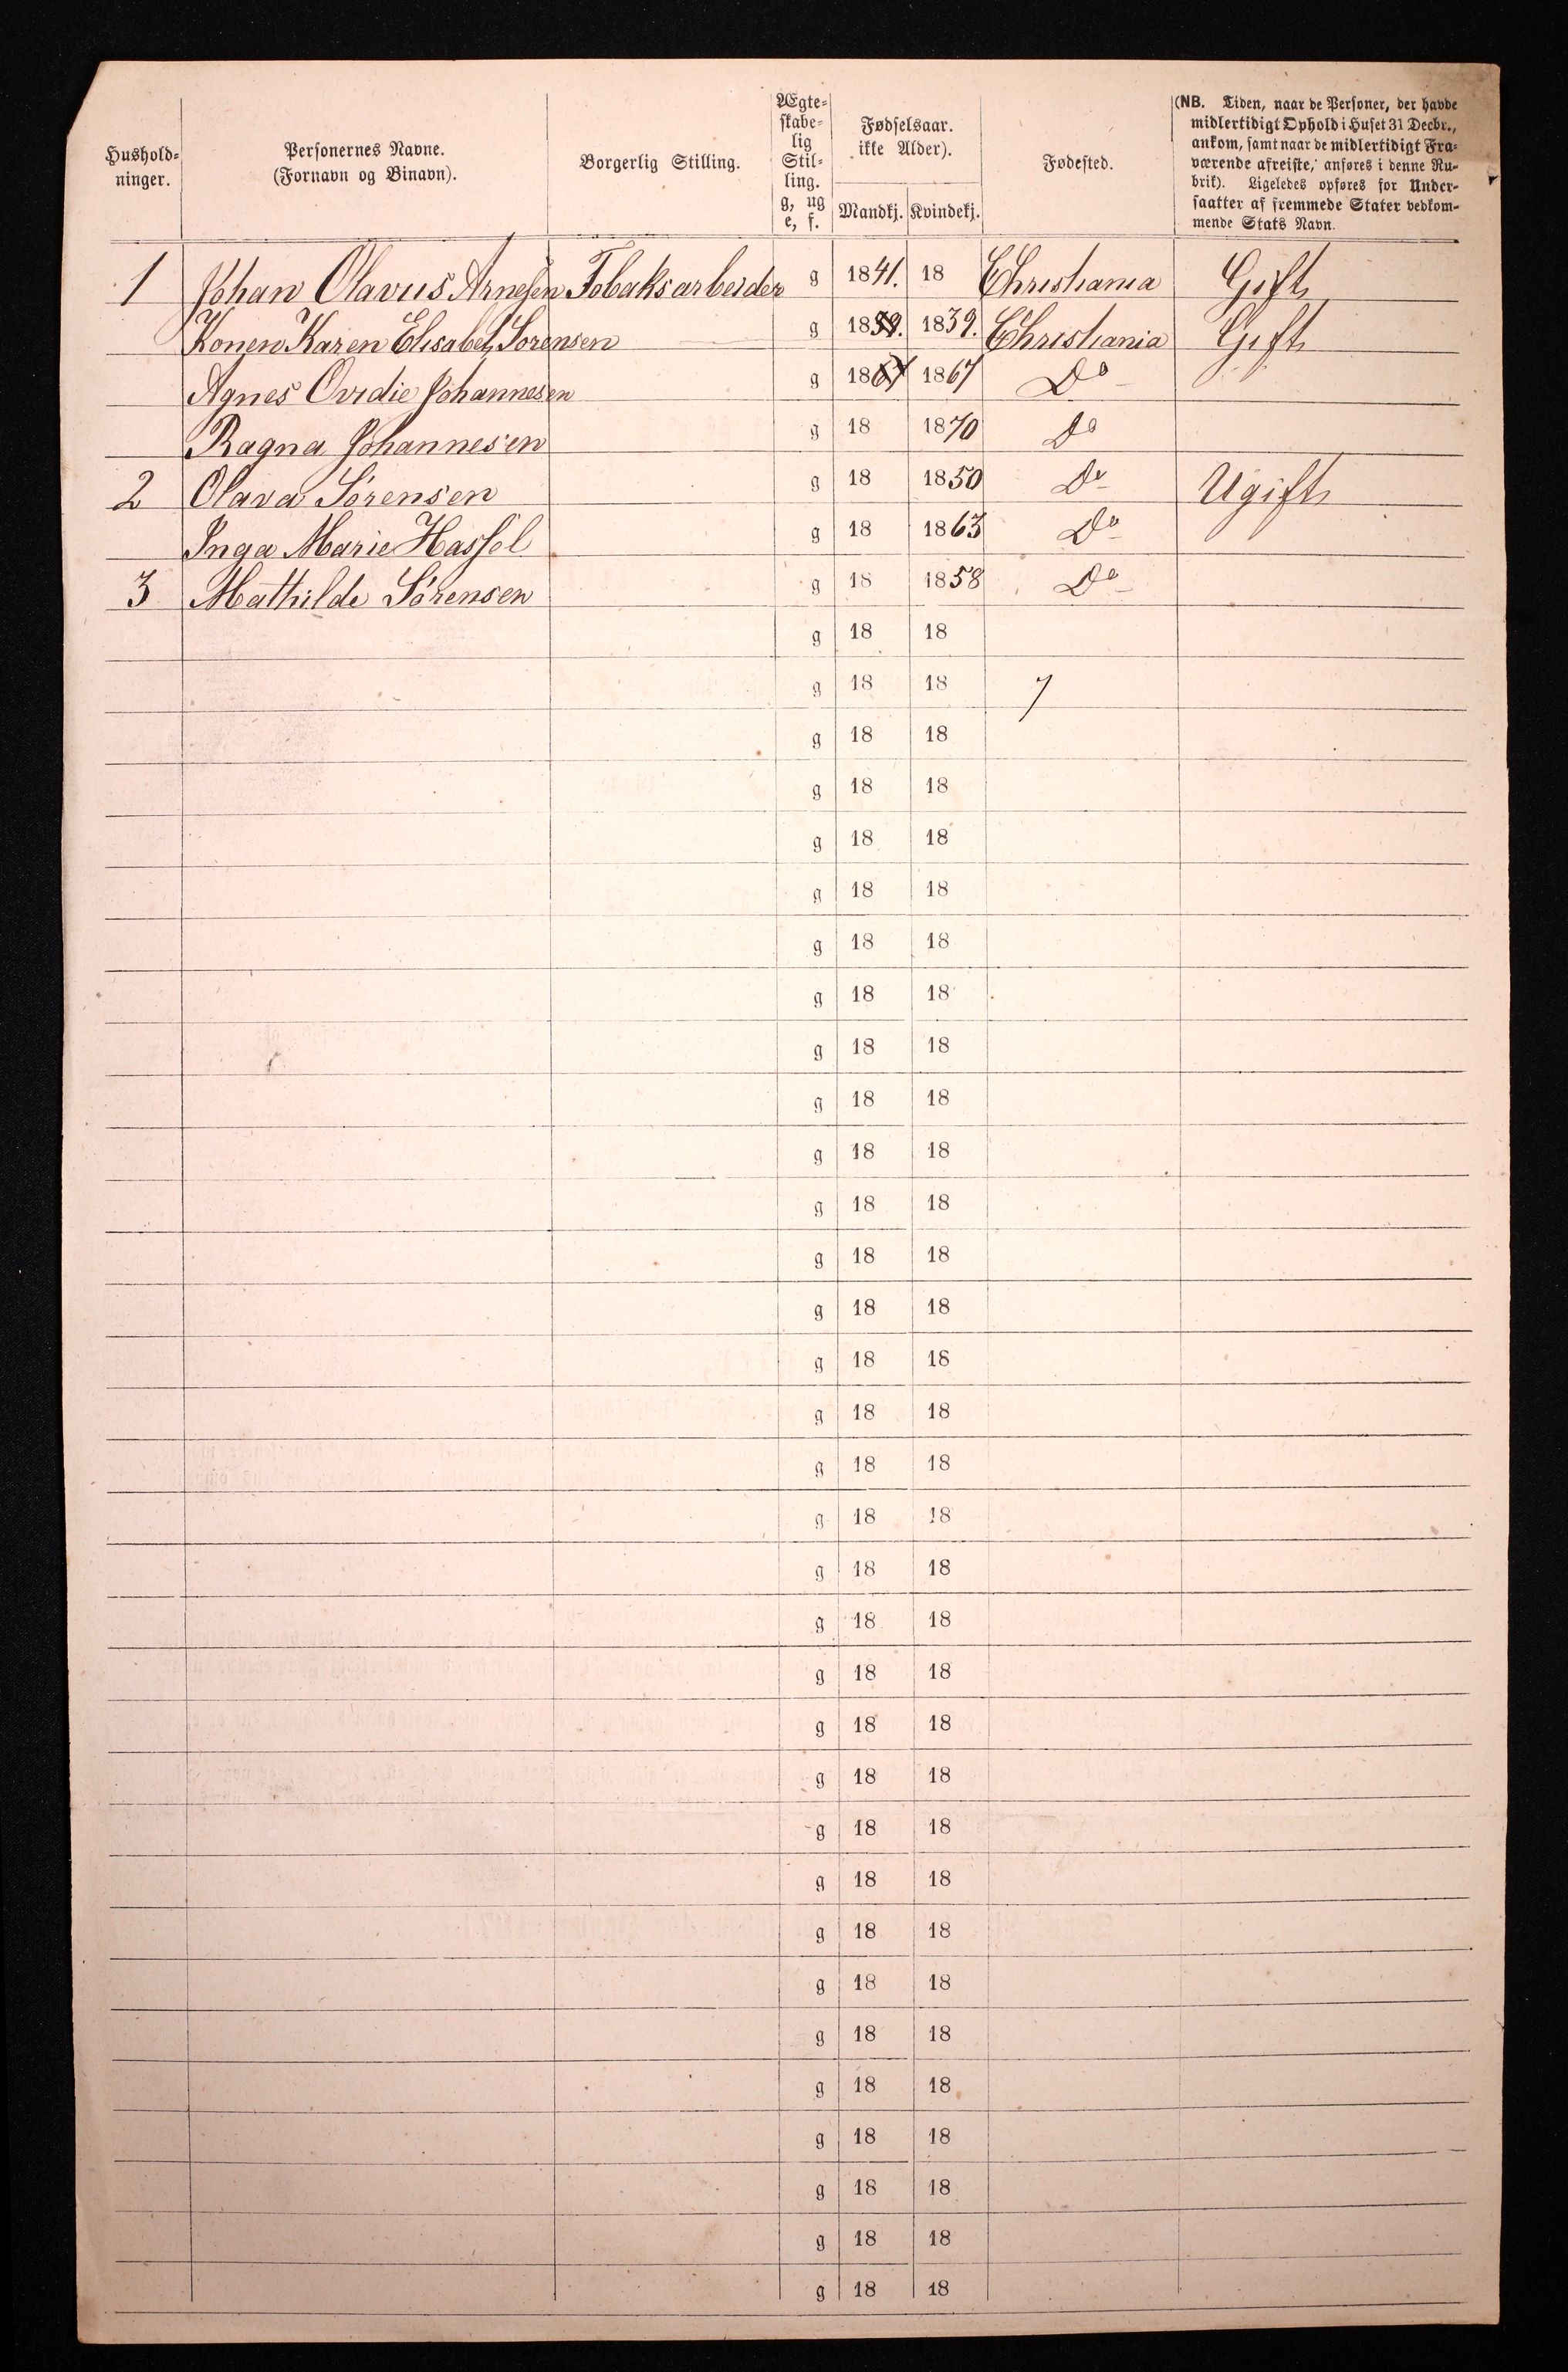 Hushold-
ninger.
Personernes Navne.
(Fornavn og Binavn).
Borgerlig Stilling.
Ægte-
skabe-
lig
Stil-
ling.
g, ug
e, f.
Fødselsaar.
ikke Alder).
Mandkj. Kvindekj.
Fødested.
(NB. Tiden, naar de Personer, der havde
midlertidigt Ophold i Huset 31 Decbr.,
ankom, samt naar de midlertidigt Fra-
værende afreiste, anføres i denne Ru-
brik). Ligeledes opføres for Under-
saatter af fremmede Stater vedkom-
mende Stats Navn.
1 Johan Olavus Arnesen Tobaksarbeider g 1841. 18 Christiania Gift
Konen Karen Elisabet Sorensen g 1839. 1839. Christiania Gift
Agnes Ovidie Johannesen g 1867 1867 Do
Ragna Johannesen g 18 1870 Do
2 Olava Sörensen g 18 1850 Do Ugift
Inga Marie Hassel g 18 1863 Do
3 Mathilde Sörensen g 18 1858 Do
g 18 18
g 18 18 7
g 18 18
g 18 18
g 18 18
g 18 18
g 18 18
g 18 18
g 18 18
g 18 18
g 18 18
g 18 18
g 18 18
g 18 18
g 18 18
g 18 18
g 18 18
g 18 18
g 18 18
g 18 18
g 18 18
g 18 18
g 18 18
g 18 18
g 18 18
g 18 18
g 18 18
g 18 18
g 18 18
g 18 18
g 18 18
g 18 18
g 18 18